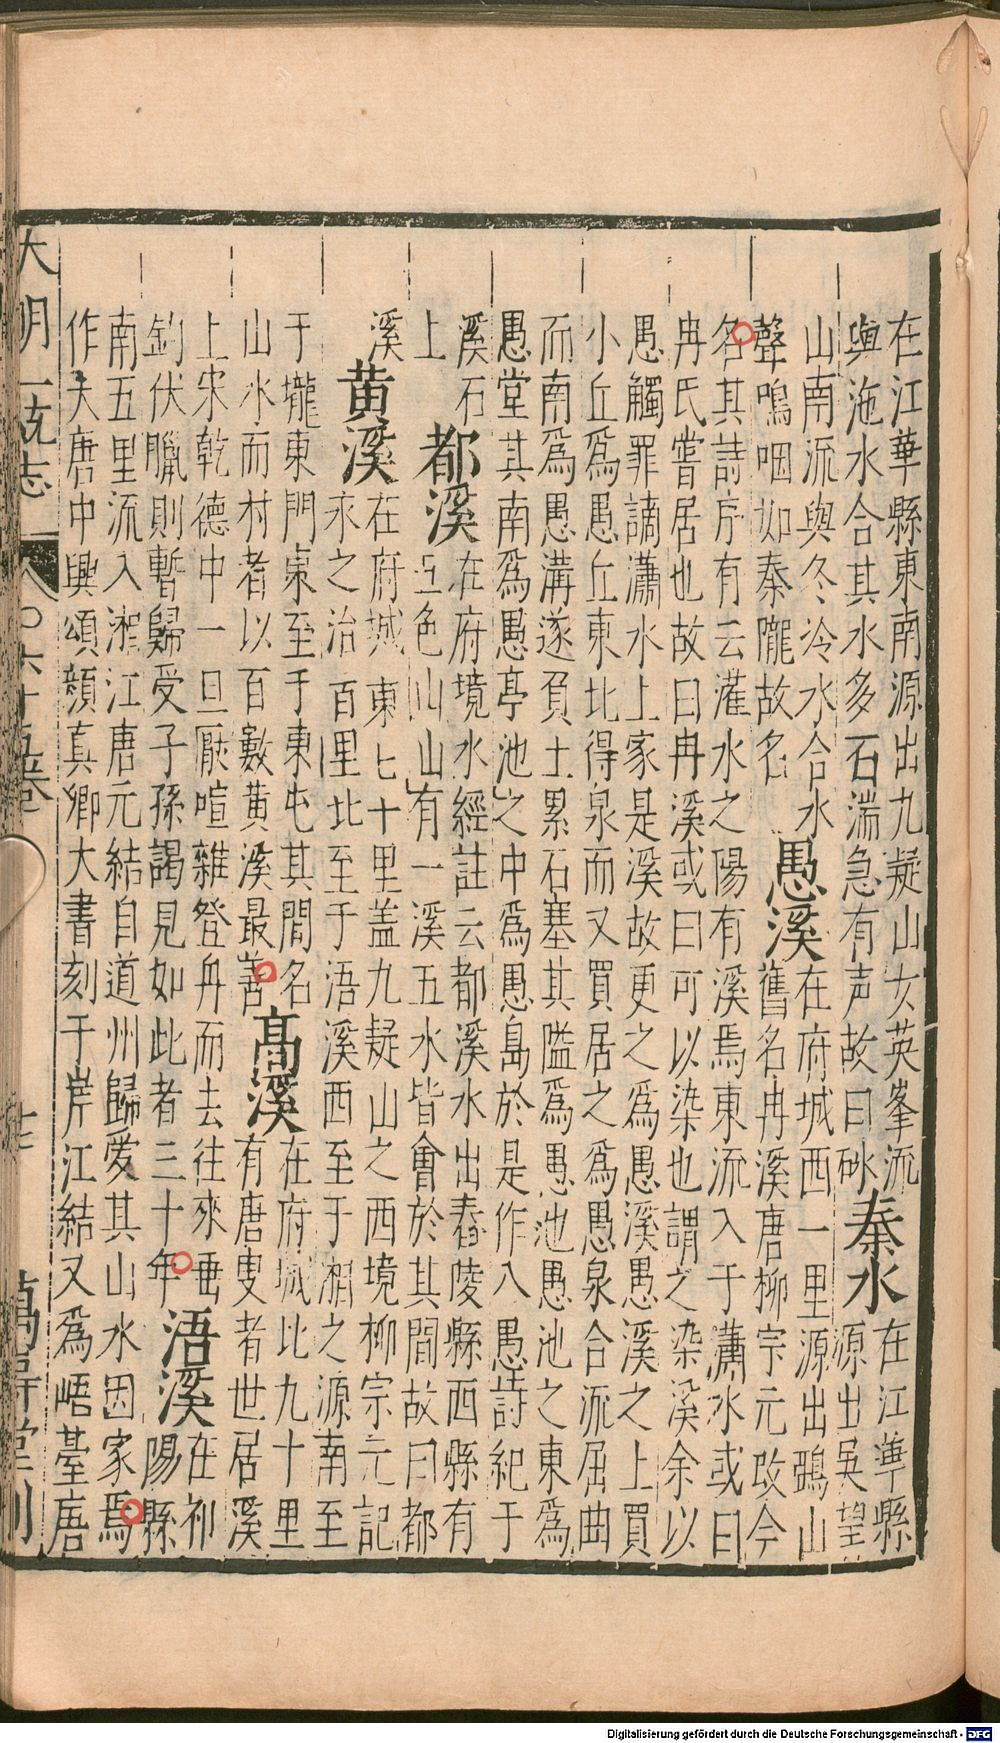 在江華縣東南源出九疑山女英峯流
與沲水合其水多石湍急有声故曰砅
秦水
在江華縣
源出吳望
山南流與冬冷水合水
聲嗚咽如秦隴故名
愚溪
在府城西一里源出鵶山
舊名冉溪唐柳宗元改今
名其詩序有云灌水之陽有溪焉東流入于瀟水或曰
冉氏嘗居也故曰冉溪或曰可以染也謂之染溪余以
愚觸罪謫瀟水上家是溪故更之為愚溪愚溪之上買
小丘為愚丘東北得泉而又買居之為愚泉合流屈曲
而南為愚溝遂負土累石塞其隘為愚池愚池之東為
愚堂其南為愚亭池之中為愚島於是作八愚詩紀于
溪石
上
都溪
在府境水經註云都溪水出舂陵縣西縣有
五色山山有一溪五水皆會於其間故曰都
溪
黄溪
在府城東七十里盖九疑山之西境柳宗元記
永之治百里北至于浯溪西至于湘之源南至
于瀧東門東至于東屯其間名
山水而村者以百數黄溪最善
高溪
在府城北九十里
有唐叟者世居溪
上宋乾德中一旦厭喧雜登舟而去往來垂
釣伏臘則暫歸受子孫謁見如此者三十年
浯溪
在祁
陽縣
南五里流入湘江唐元結自道州歸愛其山水因家焉
作大唐中興頌顏真卿大書刻于岸江結又為峿臺唐
大明一統志
六十五卷
萬壽堂刊
Digitalisierung gefördert durch die Deutsche Forschungsgemeinschaft - DFG